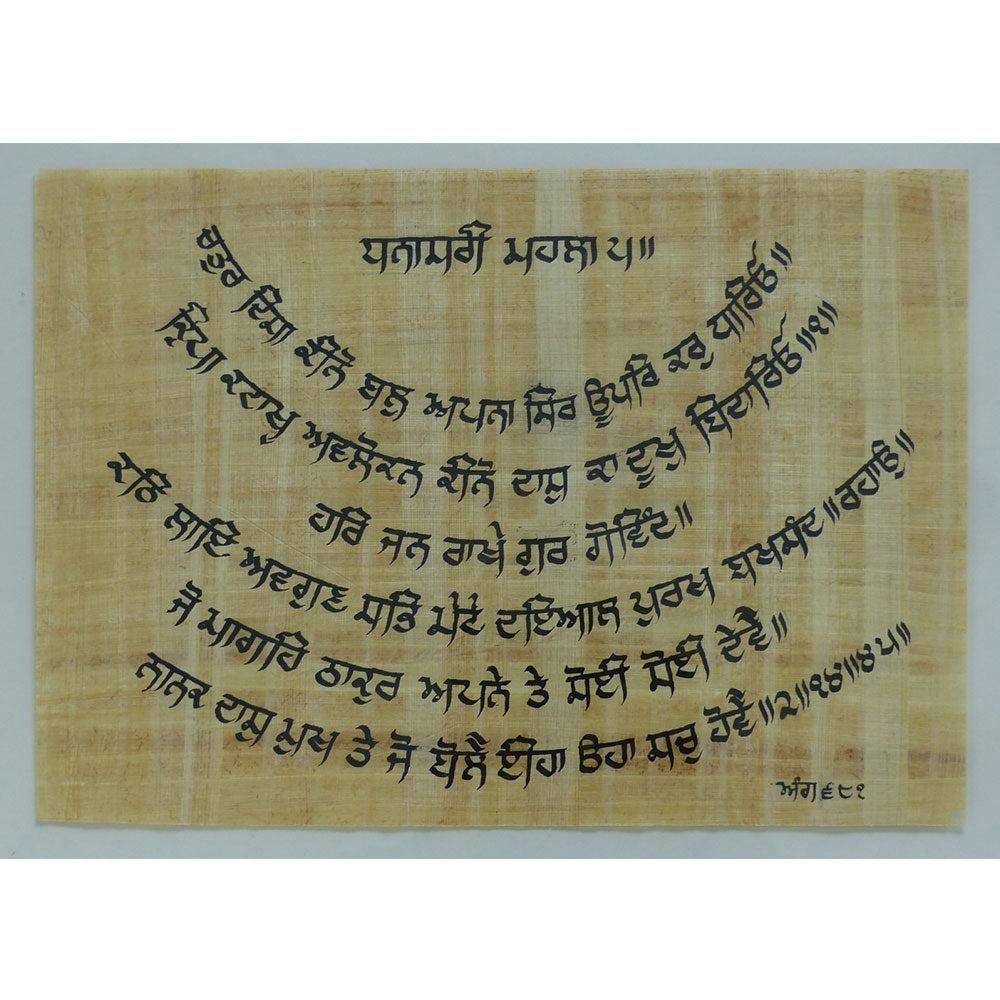 ਧਨਾਸਰੀ ਮਹਲਾ ੫॥
ਚਤੁਰ ਦਿਸਾ ਕੀਨੋ ਬਲੁ ਅਪਨਾ ਸਿਰ ਊਪਰਿ ਕਰੁ ਧਾਰਿਓ॥
ਕ੍ਰਿਪਾ ਕਟਾਖੁ ਅਵਲੋਕਨ ਕੀਨੋ ਦਾਸੁ ਕਾ ਦੂਖੁ ਬਿਦਾਰਿਓ॥੧॥
ਹਰਿ ਜਨ ਰਾਖੇ ਗੁਰ ਗੋਵਿੰਦ॥
ਕੰਠਿ ਲਾਇ ਅਵਗੁਣ ਸਭਿ ਮੇਟੇ ਦਇਆਲ ਪੁਰਖ ਬਖਸੰਦ॥ਰਹਾਉ॥
ਜੋ ਮਾਗਹਿ ਠਾਕੁਰ ਅਪਨੇ ਤੇ ਸੋਈ ਸੋਈ ਦੇਵੈ॥
ਨਾਨਕ ਦਾਸੁ ਮੁਖ ਤੇ ਜੋ ਬੋਲੈ ਈਹਾ ਊਹਾ ਸਚੁ ਹੋਵੈ॥੨॥੧੪॥੪੫॥
ਅੰਗ ੬੮੧